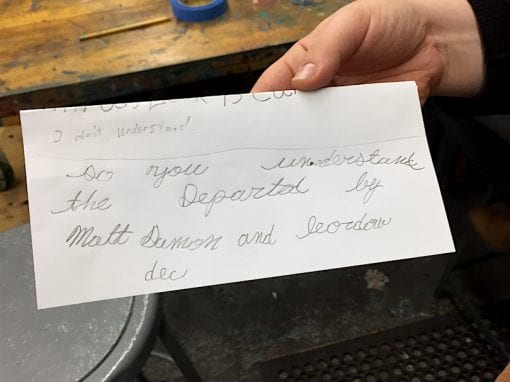 I don't understand!
Do you understand
the Departed by
Matt Damon and leordow
dec